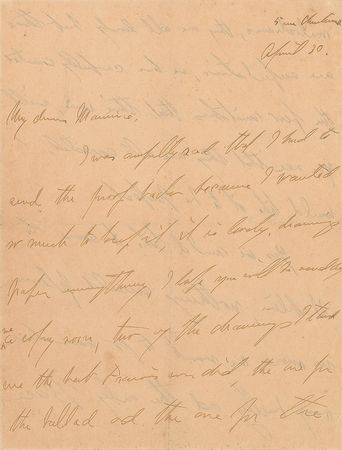 5 rue Christine
April 30.
My dear Maurice,
I was awfully sad that I had to
send the proof back because I wanted
so much to keep it, it is lovely, drawings
paper everything, I hope you will be sending
me copy soon, two of the drawings I think
are the best Francis ever did, the one for
the ballad and the one for the